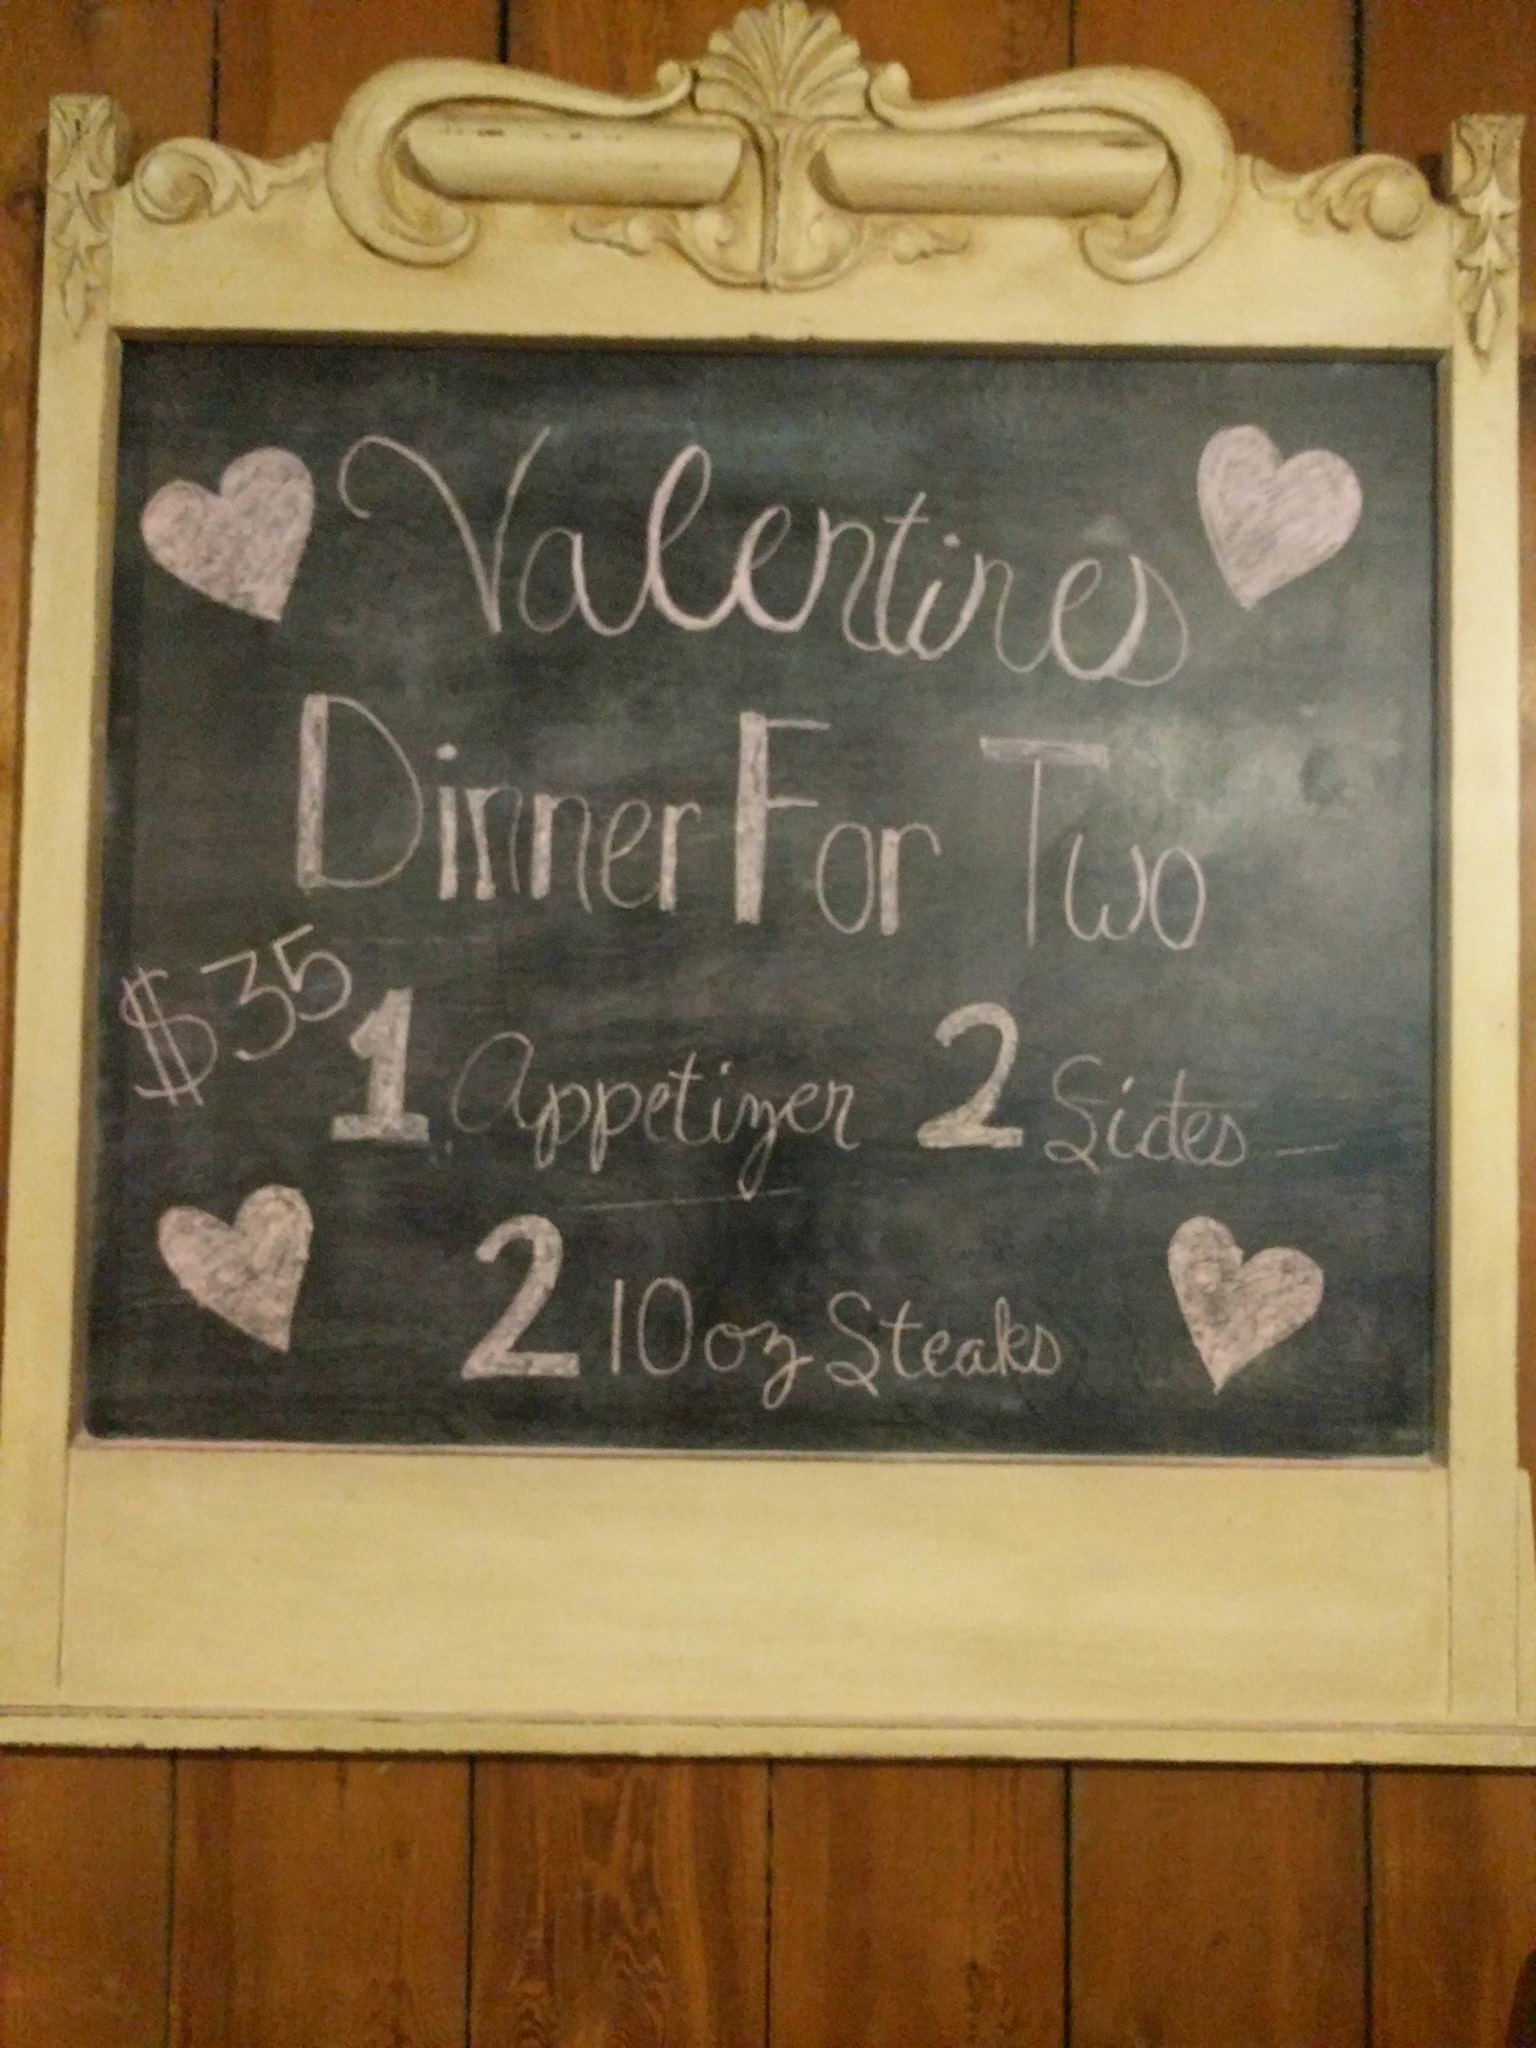 Valentines
Dinner For Two
$35
1 Appetizer 2 Sides
2 10oz Steaks